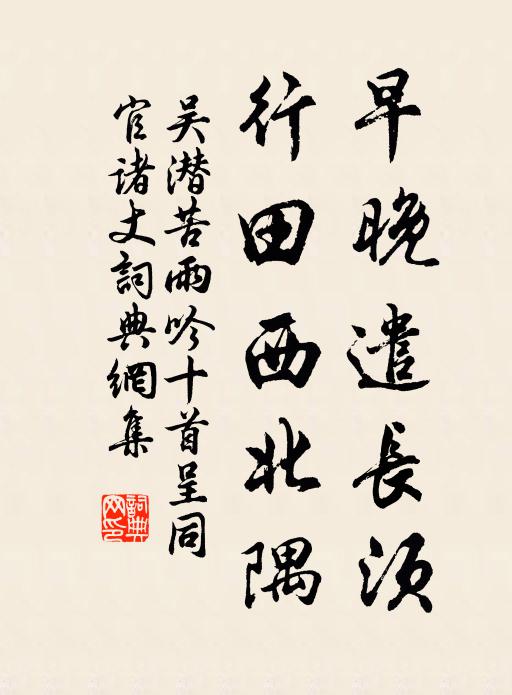 早晚遣長須
行田西北隅
吴潛苦雨吟十首呈同
官諸丈詞典網集
詞典
网印